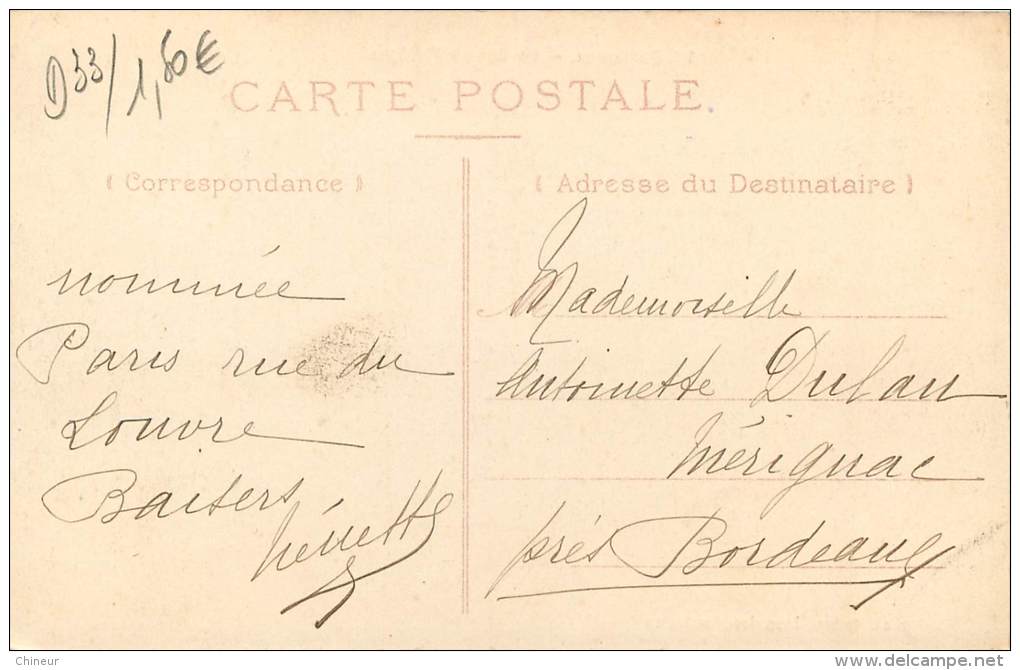 D33/1,50€
CARTE POSTALE
( Correspondance )
( Adresse du Destinataire )
nommée
Paris rue du
Louvre
Baisers
Mademoiselle
Antoinette Dulau
Mérignac
près Bordeaux
Chineur
delcampe.net